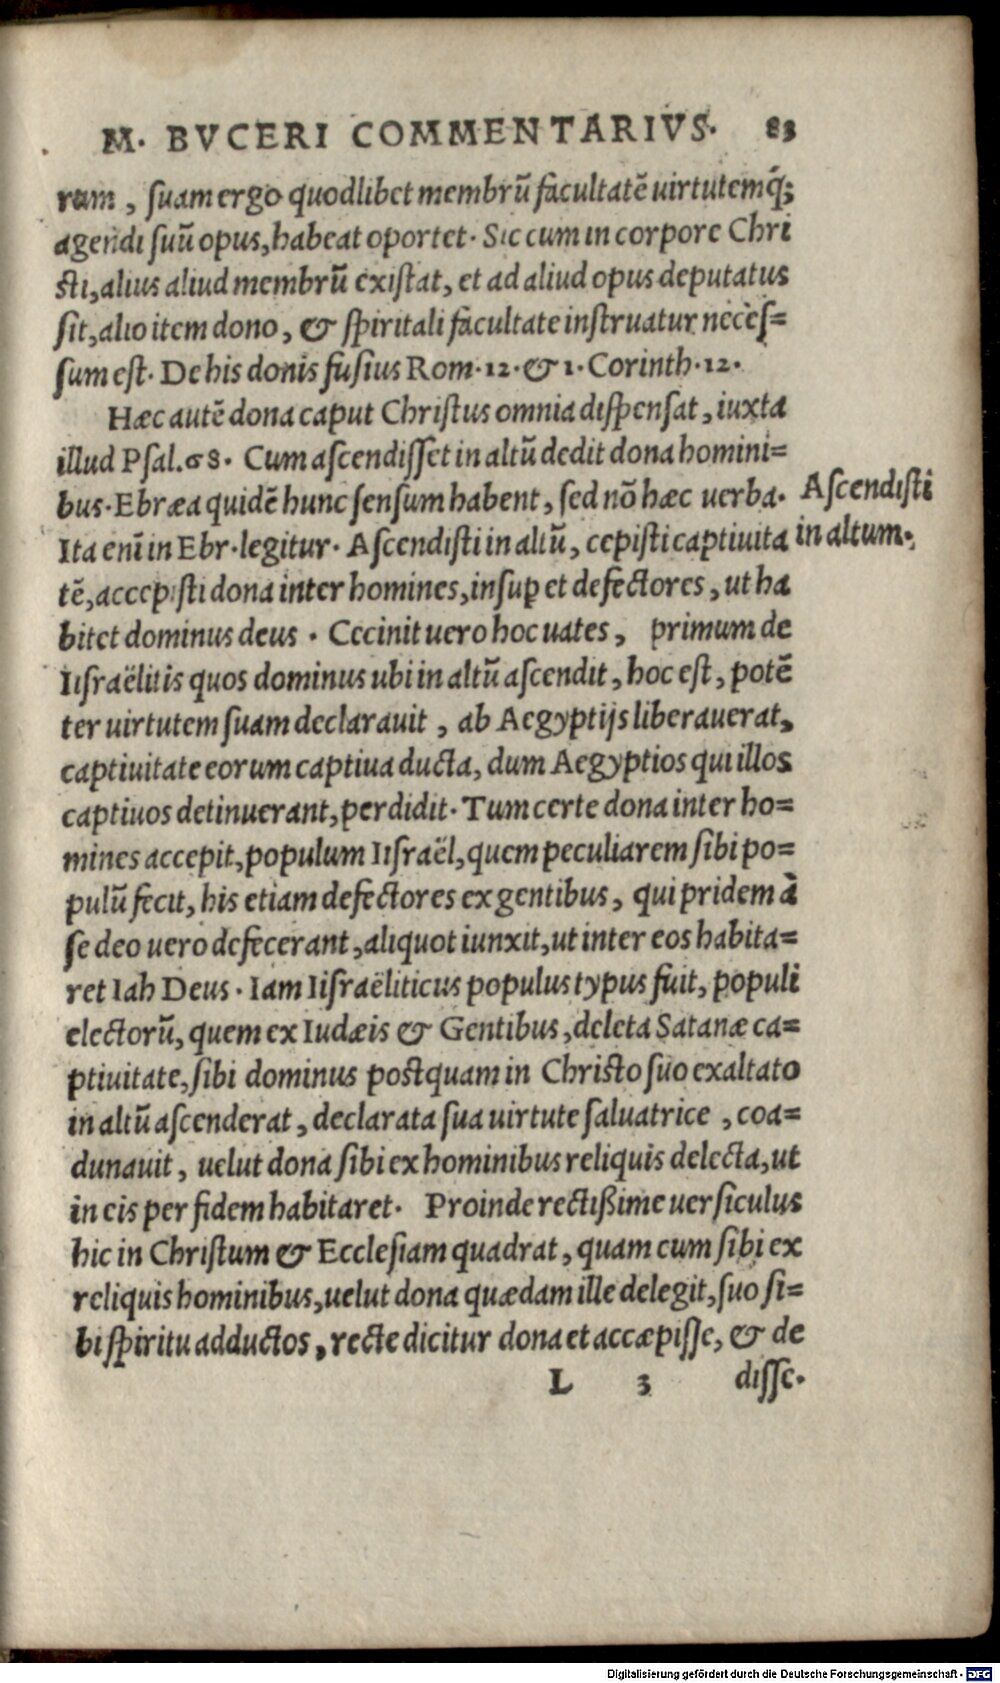 M. BVCERI COMMENTARIVS. 83
rum, ſuam ergo quodlibet membrū facultatē uirtutemq́;
agendi ſuū opus, habeat oportet. Sic cum in corpore Chri
sti, alius aliud membrū exiſtat, et ad aliud opus deputatus
ſit, alio item dono, & ſpiritali facultate inſtruatur necèſ=
ſum eſt. De his donis fuſius Rom. 12. & 1. Corinth. 12.
Hæc autē dona caput Chriſtus omnia diſpenſat, iuxta
illud Pſal. 68. Cum aſcendiſſet in altū dedit dona homini=
bus. Ebræa quidē hunc ſenſum habent, ſed nō hæc uerba.
Aſcendiſti
in altum.
Ita enī in Ebr. legitur. Aſcendiſti in altū, cepiſti captiuita
tē, accepiſti dona inter homines, inſuꝑ et defectores, ut ha
bitet dominus deus. Cecinit uero hoc uates, primum de
Iiſraëlitis quos dominus ubi in altū aſcendit, hoc eſt, potē
ter uirtutem ſuam declarauit, ab Aegyptijs liberauerat,
captiuitate eorum captiua ducta, dum Aegyptios qui illos
captiuos detinuerant, perdidit. Tum certe dona inter ho=
mines accepit, populum Iiſraël, quem peculiarem ſibi po=
pulū fecit, his etiam defectores ex gentibus, qui pridem à
ſe deo uero defecerant, aliquot iunxit, ut inter eos habita=
ret Iah Deus. Iam Iiſraëliticus populus typus fuit, populi
electorū, quem ex Iudæis & Gentibus, deleta Satanæ ca=
ptiuitate, ſibi dominus postquam in Christo ſuo exaltato
in altū aſcenderat, declarata ſua uirtute ſaluatrice, coa=
dunauit, uelut dona ſibi ex hominibus reliquis delecta, ut
in eis per fidem habitaret. Proinde rectißime uerſiculus
hic in Chriſtum & Eccleſiam quadrat, quam cum ſibi ex
reliquis hominibus, uelut dona quædam ille delegit, ſuo ſi=
bi ſpiritu adductos, recte dicitur dona et accæpiſſe, & de
L 3 diſſe.
Digitalisierung gefördert durch die Deutsche Forschungsgemeinschaft - DFG